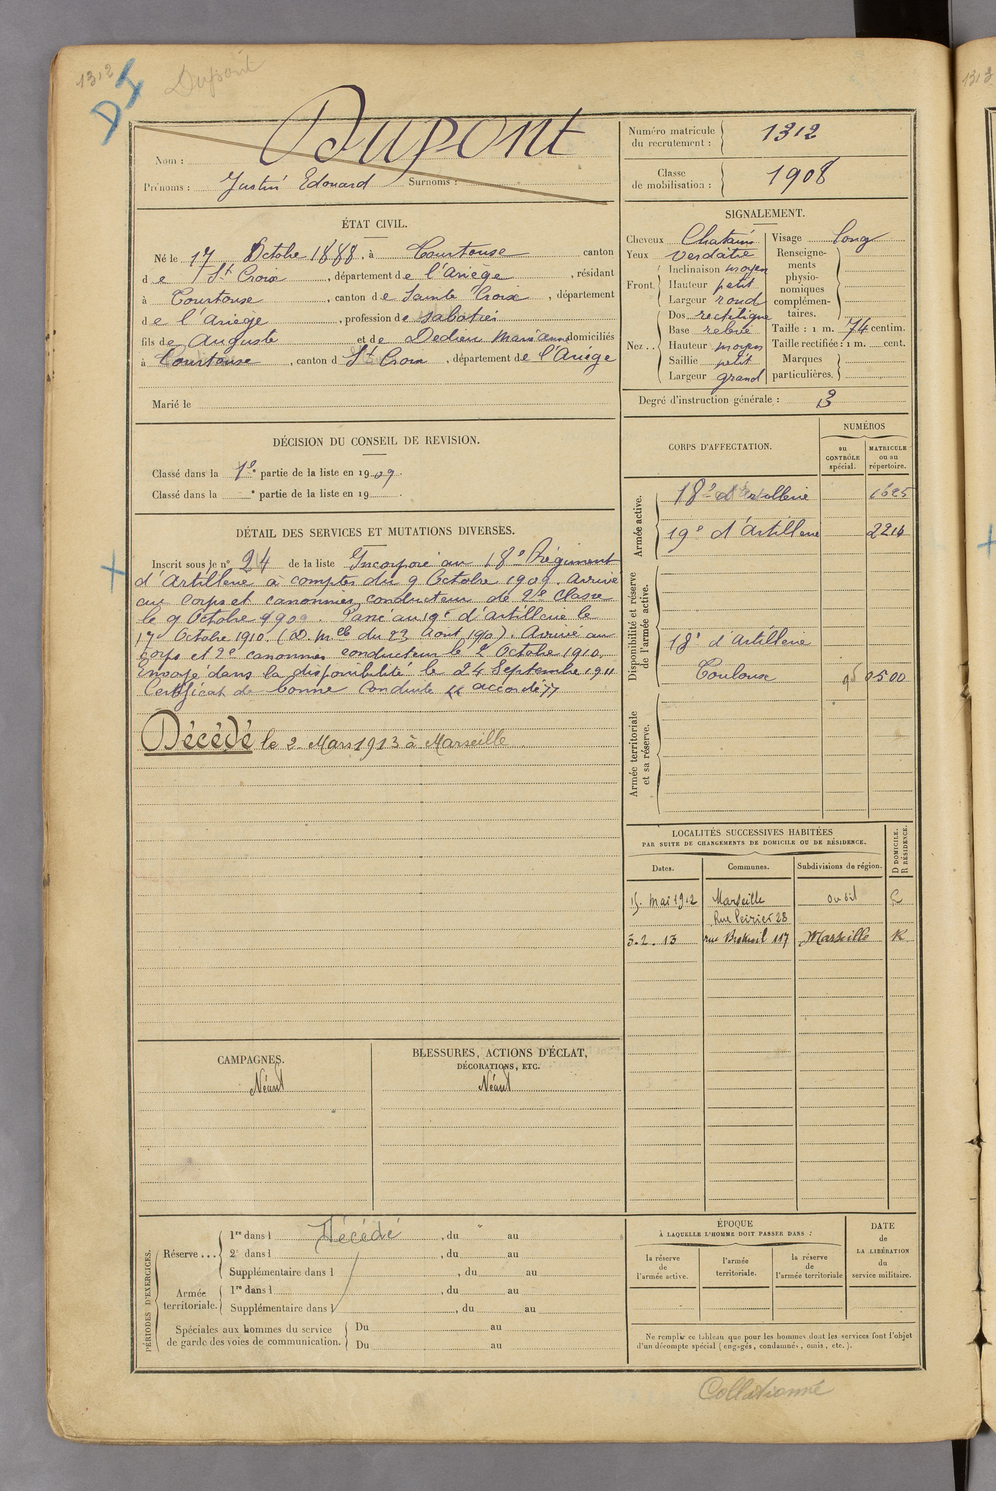 1312
DI
Dupont
Nom : DUPONT
Prénoms : Justin Edouard Surnoms :
Numéro matricule du recrutement : 1312
Classe de mobilisation : 1908
ÉTAT CIVIL.
Né le 17 Octobre 1888, à Tourtouse canton
de St Croix, département de l'Ariège, résidant
à Tourtouse, canton de Sainte Croix, département
de l'Ariège, profession de sabotier
fils de Auguste et de Dedieu Marianne domiciliés
à Tourtouse, canton d St Croix, département de l'Ariège
Marié le
SIGNALEMENT.
Cheveux Chatains
Yeux verdâtre
Front. Inclinaison moyen
Hauteur petit
Largeur rond
Nez.. Dos rectiligne
Base relevé
Hauteur moyen
Saillie petit
Largeur grand
Visage long
Renseignements physionomiques complémentaires.
Taille : 1 m. 74 centim.
Taille rectifiée : 1 m. cent.
Marques particulières.
Degré d'instruction générale : 3
DÉCISION DU CONSEIL DE REVISION.
Classé dans la 1e partie de la liste en 1909.
Classé dans la — e partie de la liste en 19 .
DÉTAIL DES SERVICES ET MUTATIONS DIVERSES.
Inscrit sous le n° 24 de la liste Incorporé au 18e Régiment
d'Artillerie à compter du 9 Octobre 1909. Arrivé
au corps et canonnier conducteur de 2e classe
le 9 Octobre 1909. Passé au 19e d'artillerie le
17 Octobre 1910. (D. Mlle du 23 Aout 1910). Arrivé au
corps et 2e canonnier conducteur le 2 Octobre 1910.
Envoyé dans la disponibilité le 24 Septembre 1911
Certificat de bonne Conduite "accordé"
Décédé le 2 Mars 1913 à Marseille
CORPS D'AFFECTATION.
NUMÉROS
au CONTRÔLE spécial.
MATRICULE ou au répertoire.
Armée active.
18e d'Artillerie 1625
19e d'Artillerie 2214
Disponibilité et réserve de l'armée active.
18e d'artillerie
Toulouse 0500
Armée territoriale et sa réserve.
LOCALITÉS SUCCESSIVES HABITÉES
PAR SUITE DE CHANGEMENTS DE DOMICILE OU DE RÉSIDENCE.
Dates. Communes. Subdivisions de région. D DOMICILE. R RÉSIDENCE.
15. mai 1912 Marseille
Rue 28
3.2.13 rue Breteuil 117 Marseille R
CAMPAGNES.
Néant
BLESSURES, ACTIONS D'ÉCLAT,
DÉCORATIONS, ETC.
Néant
PÉRIODES D'EXERCICES.
Réserve ... 1re dans l Décédé, du au
2e dans l , du au
Supplémentaire dans l , du au
Armée territoriale. 1re dans l , du au
Supplémentaire dans l , du au
Spéciales aux hommes du service de garde des voies de communication. Du au
Du au
ÉPOQUE
À LAQUELLE L'HOMME DOIT PASSER DANS :
la réserve de l'armée active.
l'armée territoriale.
la réserve de l'armée territoriale
DATE DE LA LIBÉRATION du service militaire.
Ne remplir ce tableau que pour les hommes dont les services font l'objet
d'un décompte spécial (engagés, condamnés, omis, etc.).
Collationné
1313